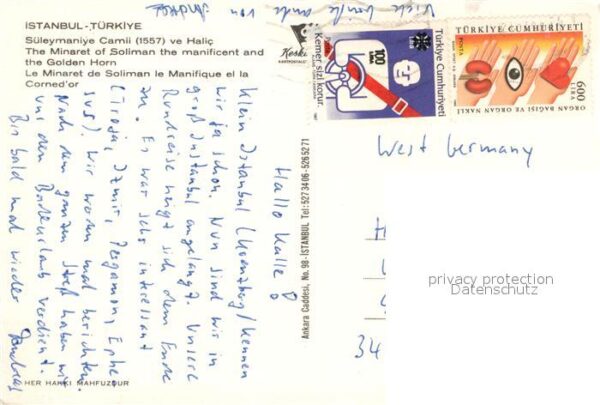 İSTANBUL-TÜRKİYE
Süleymaniye Camii (1557) ve Haliç
The Minaret of Soliman the manificent and
the Golden Horn
Le Minaret de Soliman le Manifique el la
Corned'or
Hallo Kalle
Klein Istanbul (Kreuzberg) kennen
wir ja schon. Nun sind wir in
groß Istanbul angelangt. Unsere
Rundreise neigt sich dem Ende
zu. Es war sehr interessant
(Troja, Izmir, Pergamon, Ephe
sus). Wir werden mal berichten.
Nach dem ganzen Streß haben wir
uns den Badeurlaub verdient.
Bis bald mal wieder
Viele Grüße auch von
Keskin
Ankara Caddesi, No. 98-İSTANBUL Tel: 5273406-5265271
100
LİRA
Kemer sizi korur.
Türkiye Cumhuriyeti
TÜRKİYE CUMHURİYETİ
POSTA
600
LİRA
ORGAN BAĞIŞI VE ORGAN NAKLİ
West Germany
34
privacy protection
Datenschutz
HER HAKKI MAHFUZDUR